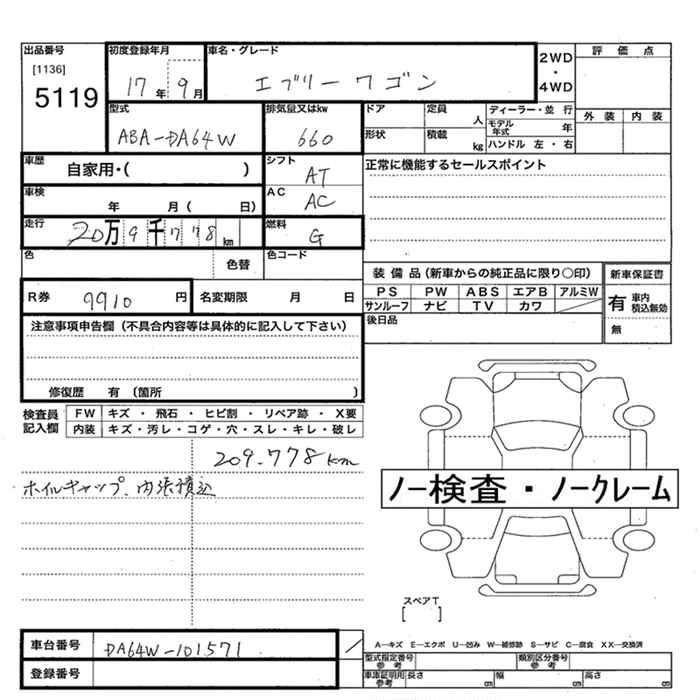 出品番号
[1136]
5119
初度登録年月
17年 9月
車名・グレード
エブリーワゴン
2WD
・
4WD
評価点
外装 内装
型式
ABA-DA64W
排気量又はkw
660
ドア
定員 人
形状
積載 kg
ディーラー・並行
モデル年式 年
ハンドル 左・右
車歴
自家用・( )
シフト
AT
正常に機能するセールスポイント
車検
年 月( 日)
AC
AC
走行
20万9千778km
燃料
G
色
色替
色コード
装備品(新車からの純正品に限り○印)
PS PW ABS エアB アルミW
サンルーフ ナビ TV カワ
新車保証書
有 車内積込無効
無
R券
9910円
名変期限 月 日
後日品
注意事項申告欄(不具合内容等は具体的に記入して下さい)
修復歴 有(箇所 )
検査員記入欄
FW キズ・飛石・ヒビ割・リペア跡・X要
内装 キズ・汚レ・コゲ・穴・スレ・キレ・破レ
209.778km
ホイルキャップ、内張積込
ノー検査・ノークレーム
スペアT
[ ]
車台番号
DA64W-101571
登録番号
A―キズ E―エクボ U―凹み W―補修跡 S―サビ C―腐食 XX―交換済
型式指定番号 参考
類別区分番号 参考
車庫証明用 参考
長さ cm
幅 cm
高さ cm